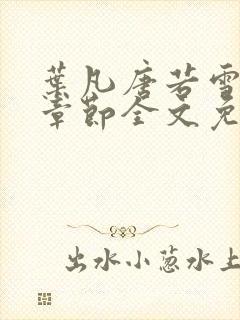 葉凡唐若雪
章節全文免
出水小葱水上